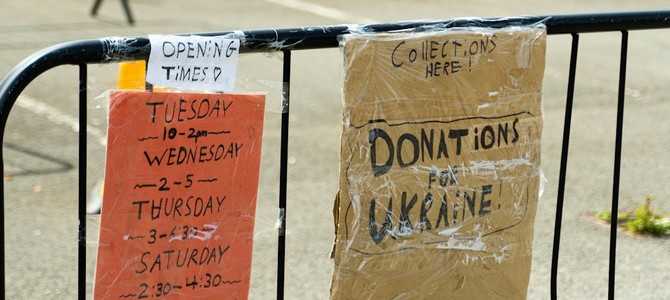 OPENING
TIMES
TUESDAY
10-2pm
WEDNESDAY
2-5
THURSDAY
3-6:30
SATURDAY
2:30-4:30
COLLECTIONS
HERE!
DONATIONS
FOR
UKRAINE!